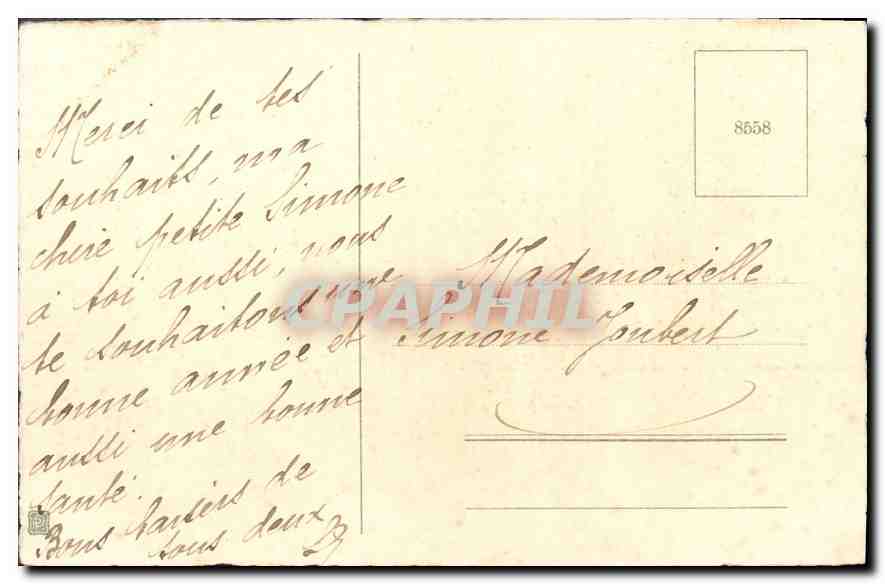 Merci de tes
souhaits, ma
chère petite Simone
à toi aussi, nous
te souhaitons une
bonne année et
aussi une bonne
santé.
Bons baisers de
tous deux
8558
Mademoiselle
Simone Joubert
CPAPHIL